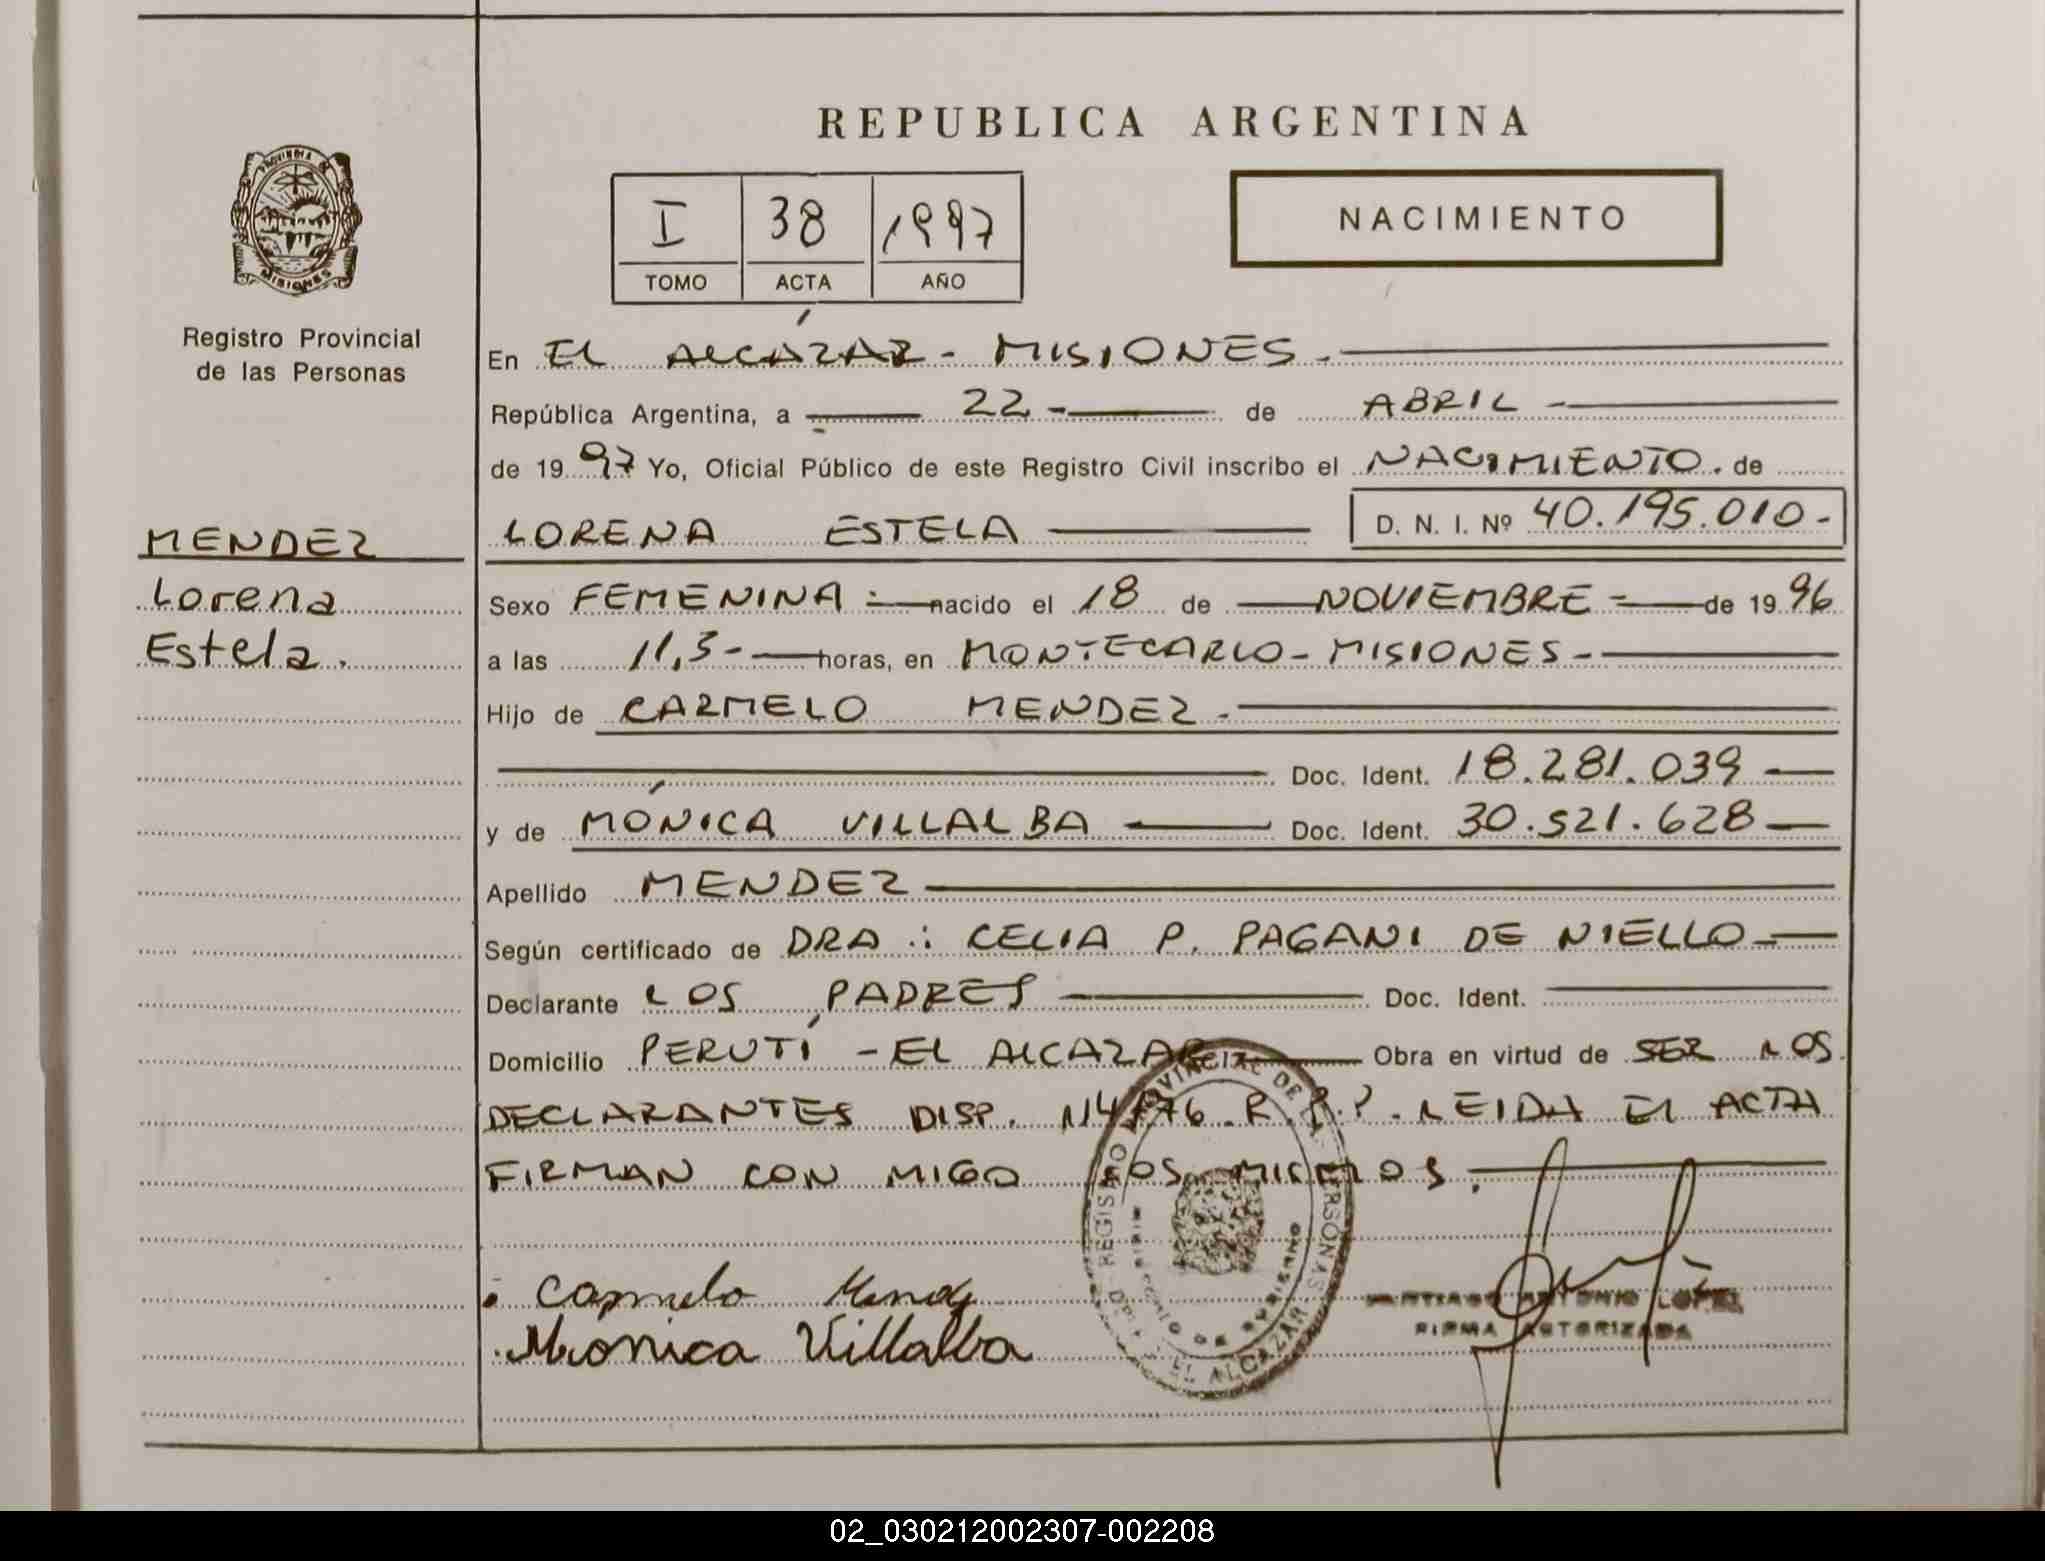 REPUBLICA ARGENTINA
PROVINCIA DE
MISIONES
I 38 1997
TOMO ACTA AÑO
NACIMIENTO
Registro Provincial
de las Personas
En EL ALCÁZAR - MISIONES.
República Argentina, a 22 - de ABRIL -
de 19 97 Yo, Oficial Público de este Registro Civil inscribo el NACIMIENTO. de
MENDEZ
Lorena
Estela.
LORENA ESTELA D. N. I. Nº 40.195.010-
Sexo FEMENINA nacido el 18 de NOVIEMBRE de 19 96
a las 11,3- horas, en MONTECARLO - MISIONES -
Hijo de CARMELO MENDEZ.
Doc. Ident. 18.281.039
y de MÓNICA VILLALBA Doc. Ident. 30.521.628
Apellido MENDEZ
Según certificado de DRA: CELIA P. PAGANI DE NIELLO
Declarante LOS PADRES Doc. Ident.
Domicilio PERUTÍ - EL ALCAZAR Obra en virtud de SER LOS
DECLARANTES DISP. R.P.P. LEIDA EL ACTA
FIRMAN CON MIGO LOS MISMOS.
Carmelo Mendez
Monica Villalba
REGISTRO PROVINCIAL DE LAS PERSONAS
EL ALCAZAR
SANTIAGO ANTONIO LOPEZ
FIRMA AUTORIZADA
02_030212002307-002208